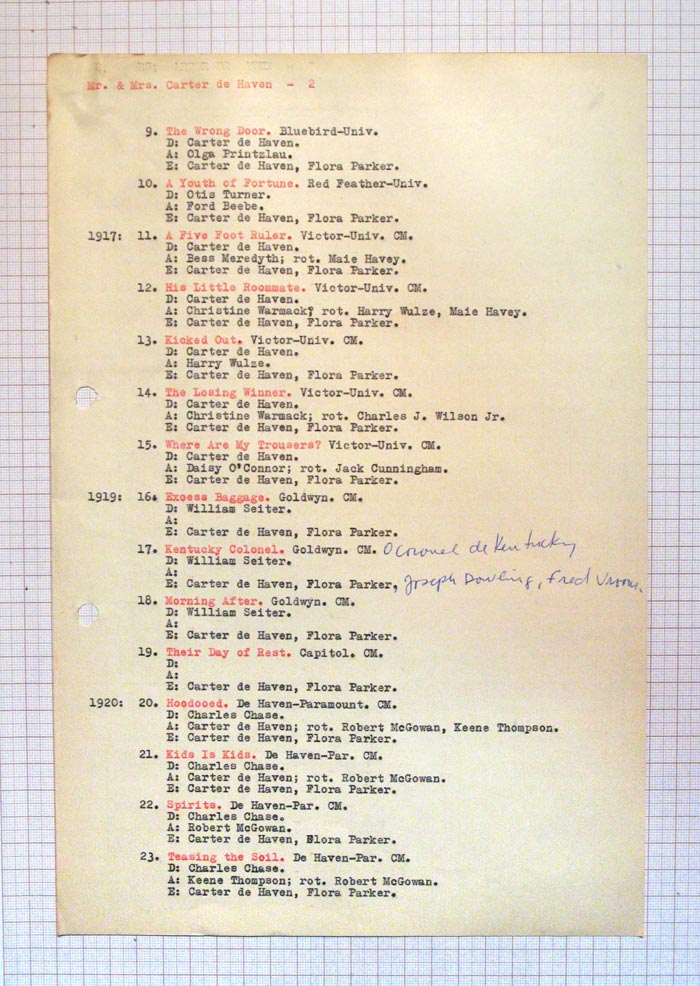 Mr. & Mrs. Carter de Haven - 2
9. The Wrong Door. Bluebird-Univ.
D: Carter de Haven.
A: Olga Printzlau.
E: Carter de Haven, Flora Parker.
10. A Youth of Fortune. Red Feather-Univ.
D: Otis Turner.
A: Ford Beebe.
E: Carter de Haven, Flora Parker.
1917: 11. A Five Foot Ruler. Victor-Univ. CM.
D: Carter de Haven.
A: Bess Meredyth; rot. Maie Havey.
E: Carter de Haven, Flora Parker.
12. His Little Roommate. Victor-Univ. CM.
D: Carter de Haven.
A: Christine Warmack; rot. Harry Wulze, Maie Havey.
E: Carter de Haven, Flora Parker.
13. Kicked Out. Victor-Univ. CM.
D: Carter de Haven.
A: Harry Wulze.
E: Carter de Haven, Flora Parker.
14. The Losing Winner. Victor-Univ. CM.
D: Carter de Haven.
A: Christine Warmack; rot. Charles J. Wilson Jr.
E: Carter de Haven, Flora Parker.
15. Where Are My Trousers? Victor-Univ. CM.
D: Carter de Haven.
A: Daisy O'Connor; rot. Jack Cunningham.
E: Carter de Haven, Flora Parker.
1919: 16. Excess Baggage. Goldwyn. CM.
D: William Seiter.
A:
E: Carter de Haven, Flora Parker.
17. Kentucky Colonel. Goldwyn. CM. O Coronel de Kentucky
D: William Seiter.
A:
E: Carter de Haven, Flora Parker, Joseph Dowling, Fred Vroom.
18. Morning After. Goldwyn. CM.
D: William Seiter.
A:
E: Carter de Haven, Flora Parker.
19. Their Day of Rest. Capitol. CM.
D:
A:
E: Carter de Haven, Flora Parker.
1920: 20. Hoodooed. De Haven-Paramount. CM.
D: Charles Chase.
A: Carter de Haven; rot. Robert McGowan, Keene Thompson.
E: Carter de Haven, Flora Parker.
21. Kids Is Kids. De Haven-Par. CM.
D: Charles Chase.
A: Carter de Haven; rot. Robert McGowan.
E: Carter de Haven, Flora Parker.
22. Spirits. De Haven-Par. CM.
D: Charles Chase.
A: Robert McGowan.
E: Carter de Haven, Flora Parker.
23. Teasing the Soil. De Haven-Par. CM.
D: Charles Chase.
A: Keene Thompson; rot. Robert McGowan.
E: Carter de Haven, Flora Parker.